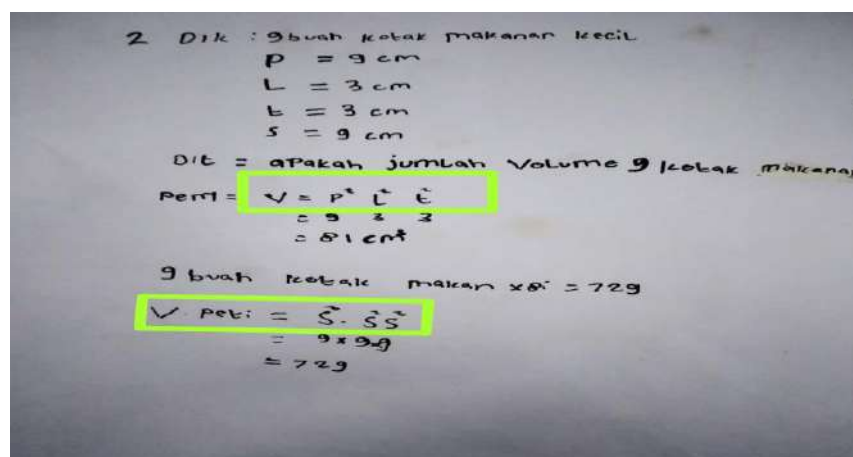 2 Dik : 9 buah kotak makanan kecil
P = 9 cm
L = 3 cm
t = 3 cm
s = 9 cm
Dit = apakah jumlah Volume 9 kotak makanan
Pem = V = P² L² t²
= 9 3 3
= 81 cm²
9 buah kotak makan x 81 = 729
V. Peti = S². S² S²
= 9 x 9.9
= 729